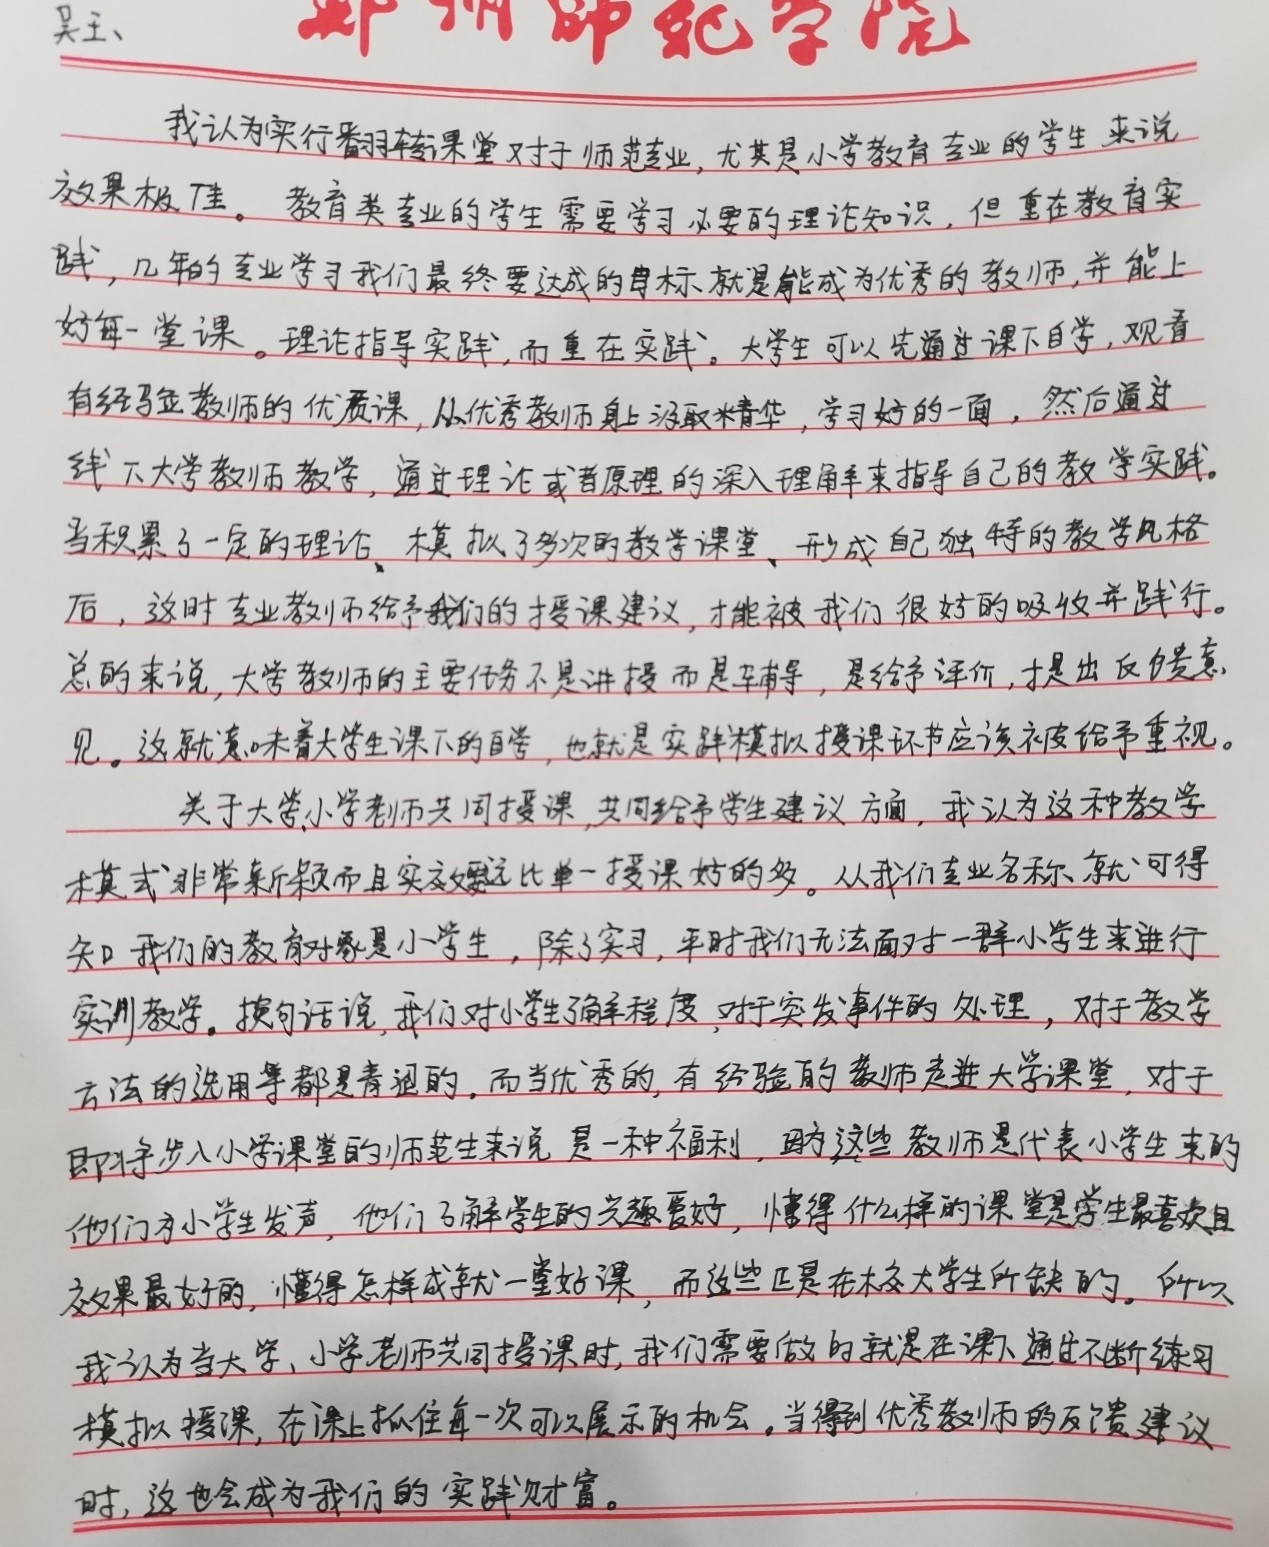 吴王、
郑州师范学院
我认为实行翻转课堂对于师范专业，尤其是小学教育专业的学生来说
效果极佳。教育类专业的学生需要学习必要的理论知识，但重在教育实
践，几年的专业学习我们最终要达成的目标就是能成为优秀的教师，并能上
好每一堂课。理论指导实践，而重在实践。大学生可以先通过课下自学，观看
有经验教师的优质课，从优秀教师身上汲取精华，学习好的一面，然后通过
线下大学教师教学，通过理论或者原理的深入理解来指导自己的教学实践。
当积累了一定的理论、模拟了多次的教学课堂、形成自己独特的教学风格
后，这时专业教师给予我们的授课建议，才能被我们很好的吸收并践行。
总的来说，大学教师的主要任务不是讲授而是辅导，是给予评价，提出反馈意
见。这就意味着大学生课下的自学，也就是实践模拟授课环节应该被给予重视。
关于大学、小学老师共同授课，共同给予学生建议方面，我认为这种教学
模式非常新颖而且实效要远比单一授课好的多。从我们专业名称就可得
知我们的教育对象是小学生，除了实习，平时我们无法面对一群小学生来进行
实训教学。换句话说，我们对小学生了解程度，对于突发事件的处理，对于教学
方法的选用等都是青涩的。而当优秀的，有经验的教师走进大学课堂，对于
即将步入小学课堂的师范生来说是一种福利，因为这些教师是代表小学生来的
他们为小学生发声，他们了解学生的兴趣爱好，懂得什么样的课堂是学生最喜欢且
效果最好的，懂得怎样成就一堂好课，而这些正是在校大学生所缺的。所以
我认为当大学、小学老师共同授课时，我们需要做的就是在课下通过不断练习
模拟授课，在课上抓住每一次可以展示的机会。当得到优秀教师的反馈建议
时，这也会成为我们的实践财富。